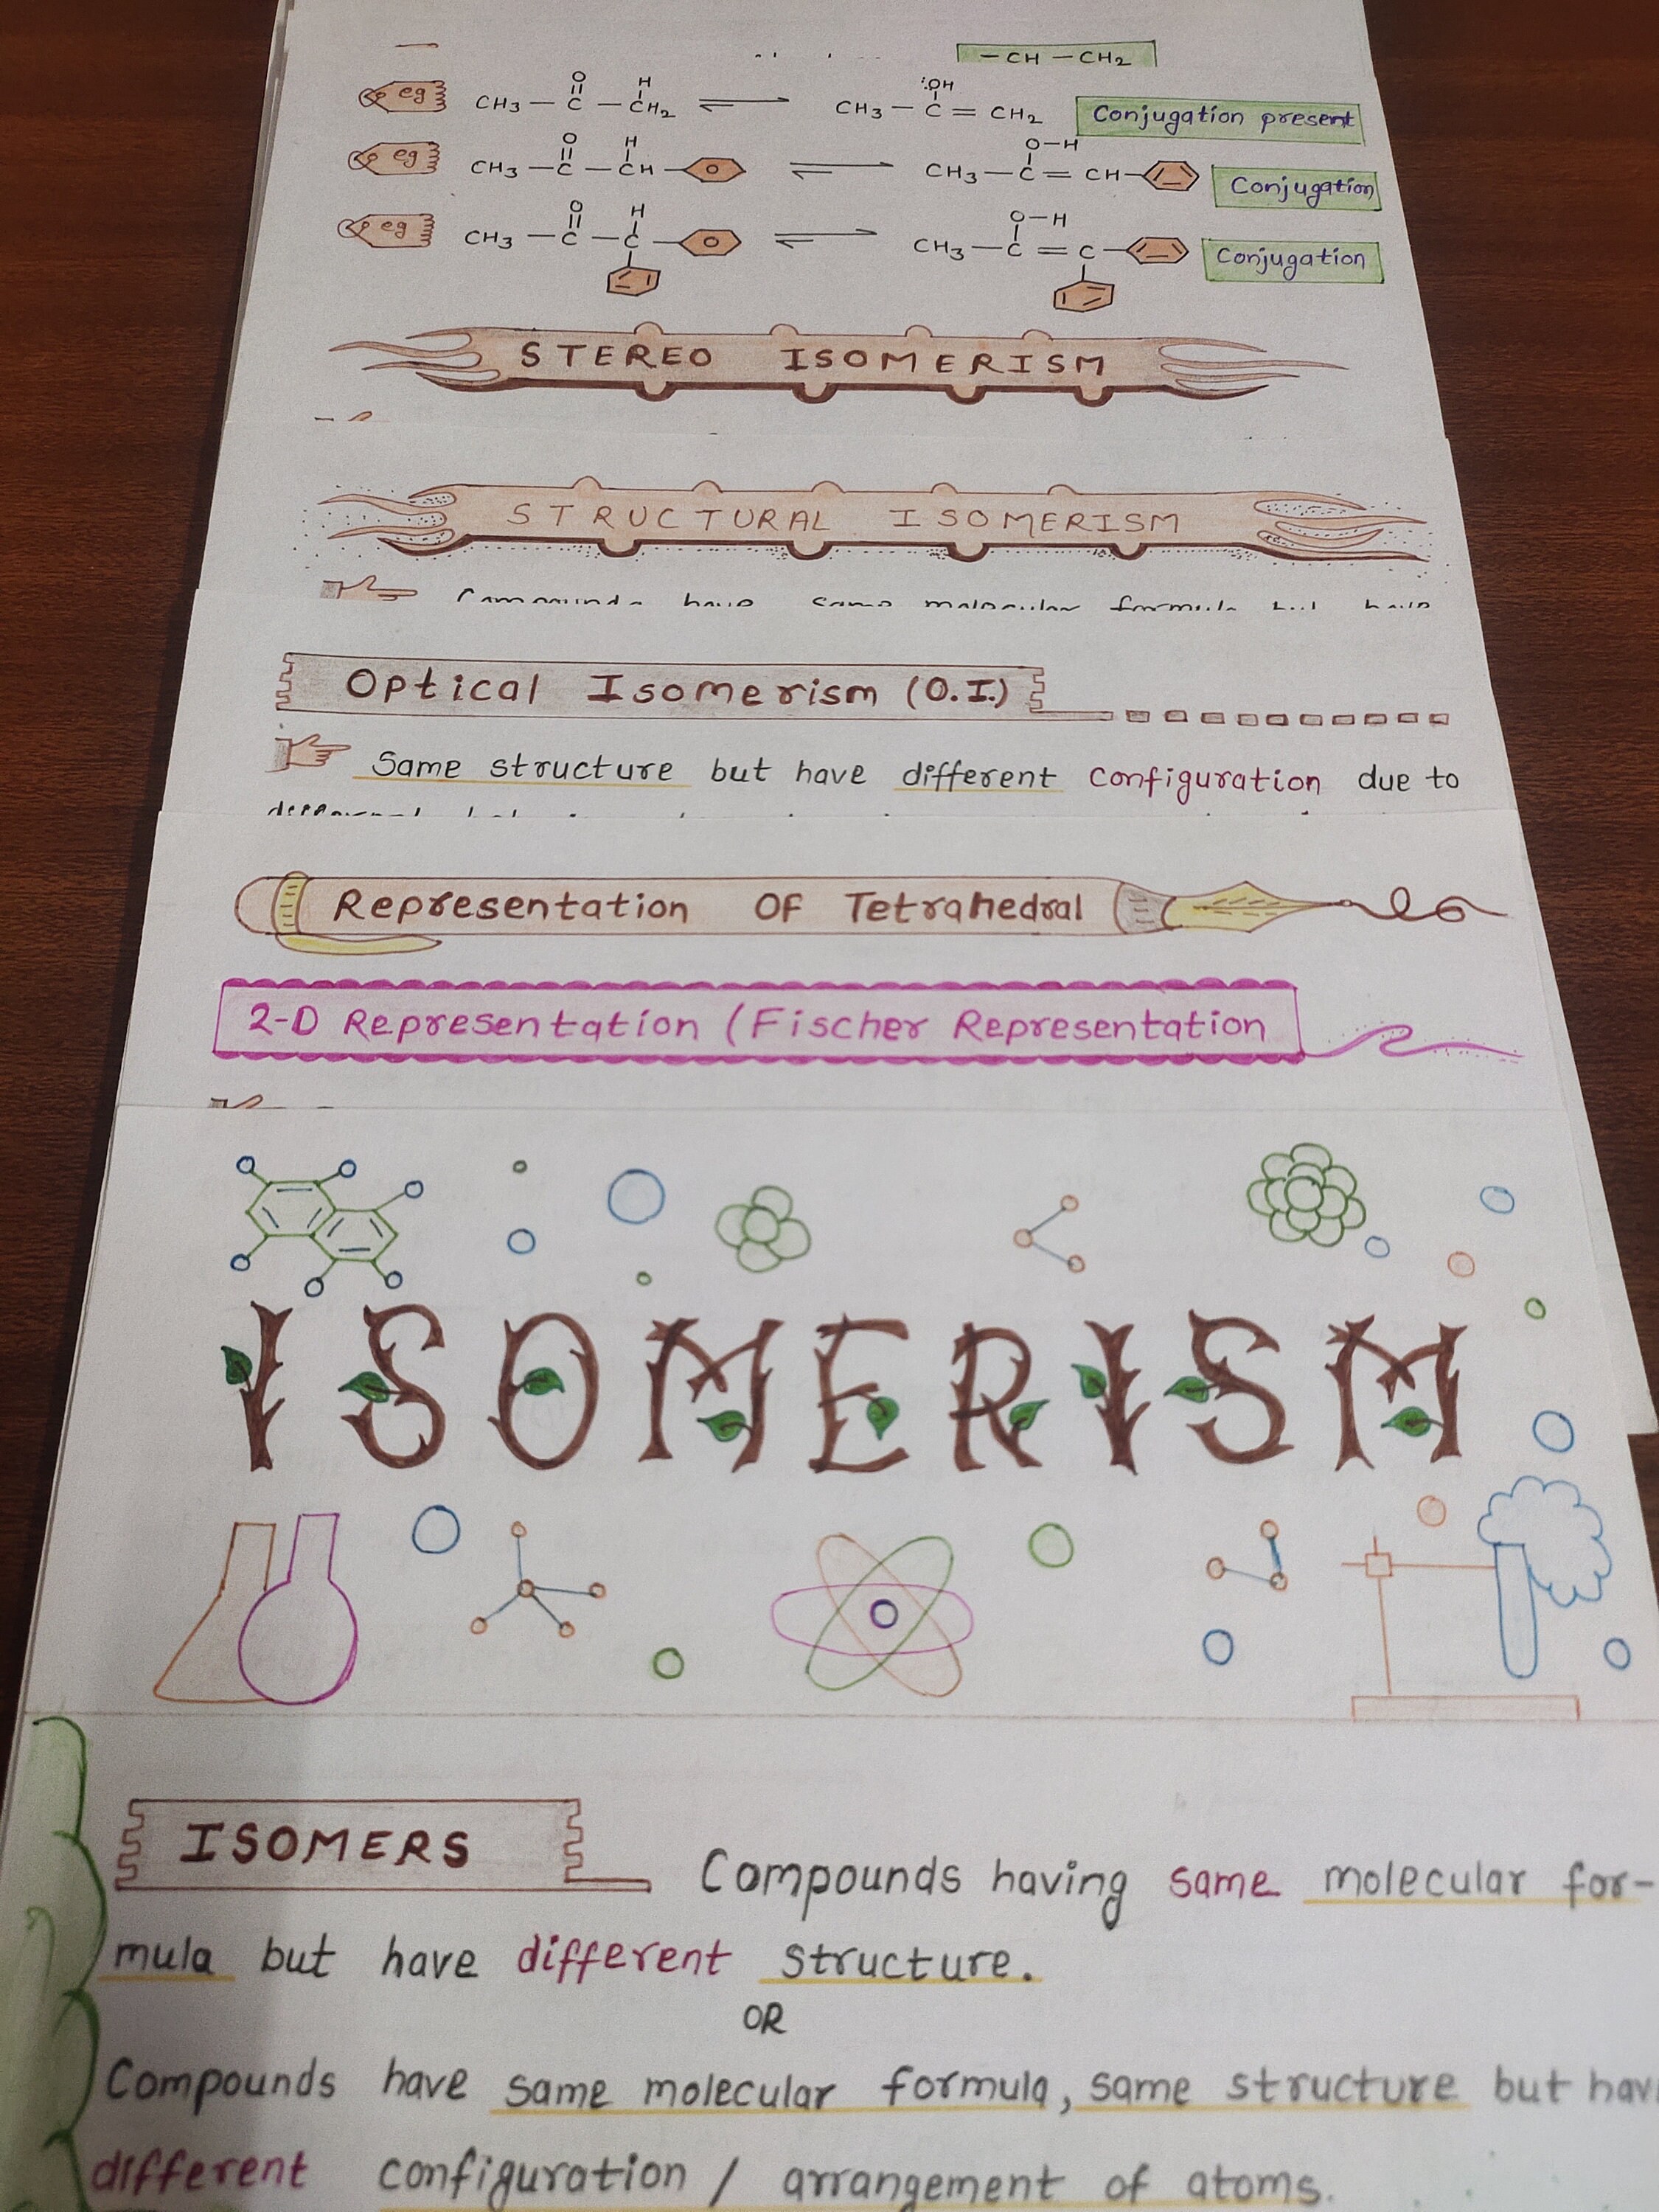 – CH – CH₂
eg CH₃ – C – CH₂ ⇌ CH₃ – C = CH₂ Conjugation present
O H :OH
eg CH₃ – C – CH – ⇌ CH₃ – C = CH – Conjugation
O H O–H
eg CH₃ – C – C – ⇌ CH₃ – C = C – Conjugation
O H O–H
STEREO ISOMERISM
STRUCTURAL ISOMERISM
Compounds have same molecular formula but have
Optical Isomerism (O.I.)
Same structure but have different configuration due to
Representation OF Tetrahedral
2-D Representation (Fischer Representation
ISOMERISM
ISOMERS Compounds having same molecular for-
mula but have different structure.
OR
Compounds have same molecular formula, same structure but hav
different configuration / arrangement of atoms.